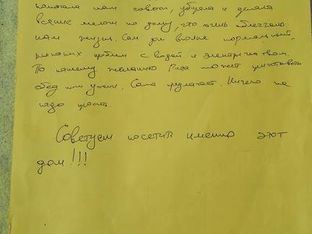 помогала нам советом, убирала и делала
всякие мелочи по дому, что очень облегчало
нам жизнь. Сам дом вполне нормальный,
никаких проблем с водой и электричеством.
По вашему желанию Рада может приготовить
обед или ужин. Сама предлагает. Ничего не
надо просить
Советуем посетить именно этот
дом!!!